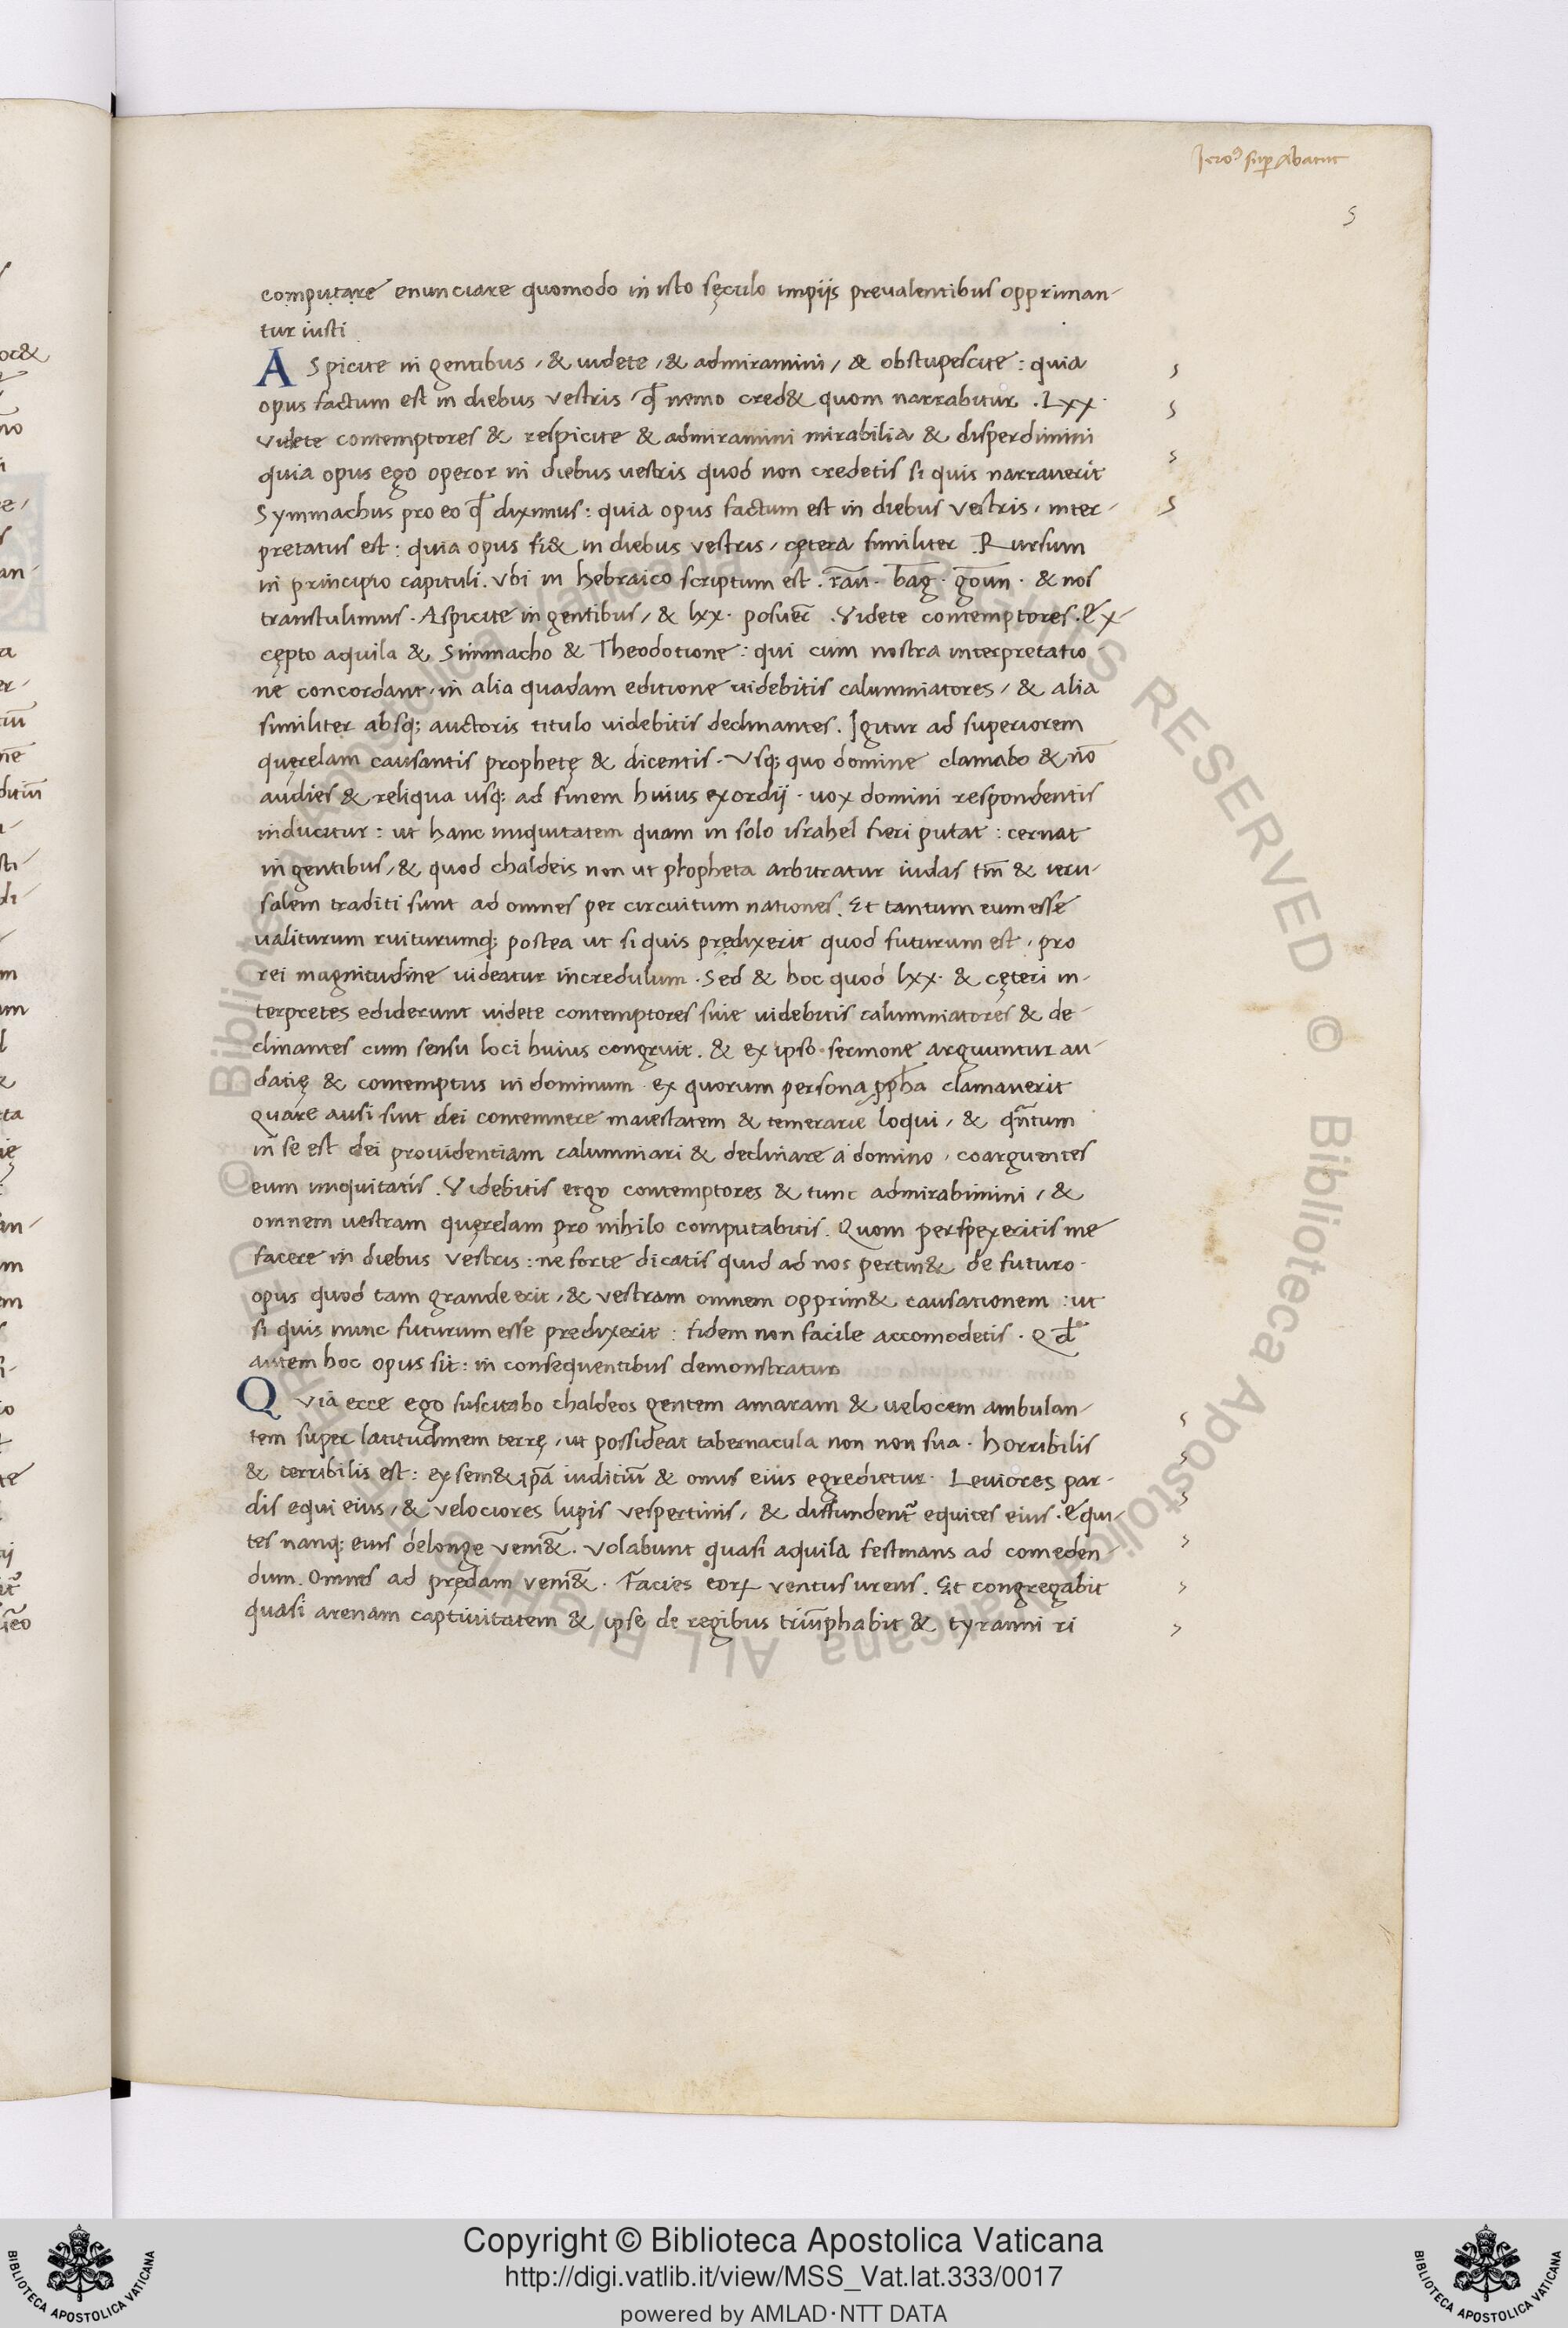 Jero⁹ sup Abacuc
5
computare enunciare quomodo in isto sęculo impijs preualentibus oppriman-
tur iusti
ASpicite in gentibus, & uidete, & admiramini, & obstupescite: quia
opus factum est in diebus vestris, qđ nemo cred& quom narrabitur. Lxx.
Videte contemptores & respicite & admiramini mirabilia & disperdimini
quia opus ego operor in diebus uestris quod non credetis si quis narrauerit
Symmachus pro eo qđ diximus: quia opus factum est in diebus vestris, inter-
pretatus est: quia opus fi& in diebus vestris, cętera similiter. Rursum
in principio capituli. vbi in hebraico scriptum est. rāu. bāg. goūn. & nos
transtulimus. Aspicite in gentibus, & lxx. posuer̄. Videte contemptores. Ex-
cępto aquila & Simmacho & Theodotione: qui cum nostra interpretatio-
ne concordant, in alia quadam editione uidebitis calumniatores, & alia
similiter absq; auctoris titulo uidebitis declinantes. Igitur ad superiorem
quęrelam causantis prophetę & dicentis. Vsq; quo domine clamabo & nō
audies & reliqua usq; ad finem huius exordij. uox domini respondentis
inducitur: ut hanc iniquitatem quam in solo israhel fieri putat: cernat
in gentibus, & quod chaldeis non ut propheta arbitratur iudas tm̄ & ieru-
salem traditi sunt ad omnes per circuitum nationes. Et tantum eum esse
ualiturum ruiturumq; postea ut si quis prędixerit quod futurum est, pro
rei magnitudine uideatur incredulum. Sed & hoc quod lxx. & cęteri in-
terpretes ediderunt uidete contemptores siue uidebitis calumniatores & de-
clinantes cum sensu loci huius congruit. & ex ipso sermone arguuntur au-
datię & contemptus in dominum ex quorum persona ꝓpħa clamauerit
quare ausi sint dei contemnere maiestatem & temerarie loqui, & qn̄tum
in se est dei prouidentiam calumniari & declinare a domino, coarguentes
eum iniquitatis. Videbitis ergo contemptores & tunc admirabimini, &
omnem uestram quęrelam pro nihilo computabitis. Quom perspexeritis me
facere in diebus vestris: ne forte dicatis quid ad nos pertin& de futuro.
opus quod tam grande erit, & vestram omnem opprim& causationem: ut
si quis nunc futurum esse predixerit: fidem non facile accomodetis. Qđ
autem hoc opus sit: in consequentibus demonstratur
QVia ecce ego suscitabo chaldeos gentem amaram & uelocem ambulan-
tem super latitudinem terrę, ut possideat tabernacula non non sua. horribilis
& terribilis est: ex sem& ip̄a iuditiū & onus eius egredietur. Leuiores par-
dis equi eius, & velociores lupis vespertinis, & diffundent̄ equites eius. Equi-
tes nanq; eius delonge veni&̄. volabunt quasi aquila festinans ad comeden-
dum. Omnes ad prędam veni&̄. Facies eoꝝ ventus urens. Et congregabit
quasi arenam captiuitatem & ipse de regibus triūphabit & tyranni ri
Copyright © Biblioteca Apostolica Vaticana
http://digi.vatlib.it/view/MSS_Vat.lat.333/0017
powered by AMLAD·NTT DATA
BIBLIOTECA APOSTOLICA VATICANA
BIBLIOTECA APOSTOLICA VATICANA